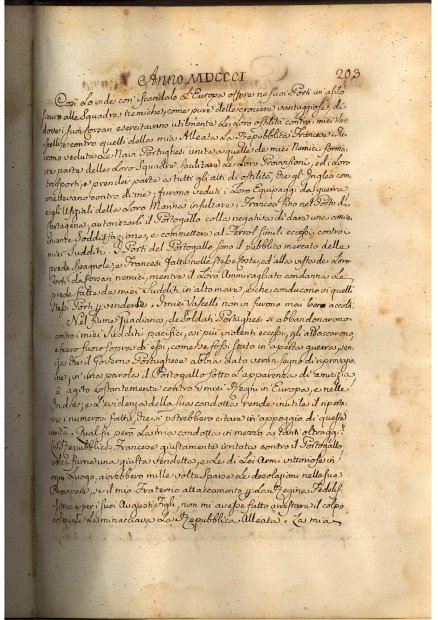 Anno MDCCCI 203
Così La vide con iscandalo L'Europa offrire ne' suoi Porti un asilo
sicuro alle Squadre nemiche, come pure delle crociere vantaggiose, di
dove i suoi Corsari esercitavano utilmente Le Loro ostilità contro i miei Vas-
selli, e contro quelli della mia Alleata La Repubblica Francese. Si
sono vedute Le Navi Portughesi unite a quelle de' miei Nemici forma-
re parte delle Loro Squadre, facilitare Le Loro Provisioni, ed i Loro
trasporti, e prender parte a tutti gli atti di ostilità, che gl' Inglesi com-
mettevano contro di me; furono veduti i Loro Equipaggi da guerra
e gli Uffiziali della Loro Marina insultare i Francesi fino nel Porto di
Cartagena, autorizzarli il Portogallo colla negativa di dare una conve-
niente soddisfazione, e commettere al Ferrol simili eccessi contro i
miei Sudditi. I Porti del Portogallo sono il pubblico mercato delle
prede Spagnole, e Francesi fatte nelle stesse Coste, ed alla vista de' Loro
Forti da Corsari nemici, mentre il Loro Ammiragliato condanna Le
prede fatte da miei Sudditi in alto mare, e che conducono in quelli
stessi Porti per venderle. I miei Vascelli non vi furono mai bene accolti.
Nel fiume Guadiana, de' Soldati Portughesi si abbandonarono
contro i miei Sudditi pacifici, ai più violenti eccessi, gli attaccarono,
e fecero fuoco sopra di essi, come se fosse stato in aperta guerra, sen-
za che il Governo Portughese abbia dato verun segno di riprovazio-
ne; in una parola il Portogallo sotto L'apparenza di amicizia
à agito costantemente contro i miei Regni in Europa, e nelle
Indie; e L'evidenza della sua condotta rende inutile il riporta-
re i numerosi fatti, che si potrebbero citare in appoggio di questa
verità. Qual fu però La mia condotta in mezzo a tanti oltraggi?
La Repubblica Francese giustamente irritata contro il Portogallo
volea farne una giusta Vendetta, e Le di Lei Armi vittoriose in
ogni Luogo, avrebbero mille volte sparso La desolazione nelle sue
Provincie, se il mio fraterno attaccamento per La Regina Fedelis-
sima e per i suoi Augusti figli, non mi avesse fatto arrestare il colpo
col quale La minacciava La Repubblica Alleata. La mia